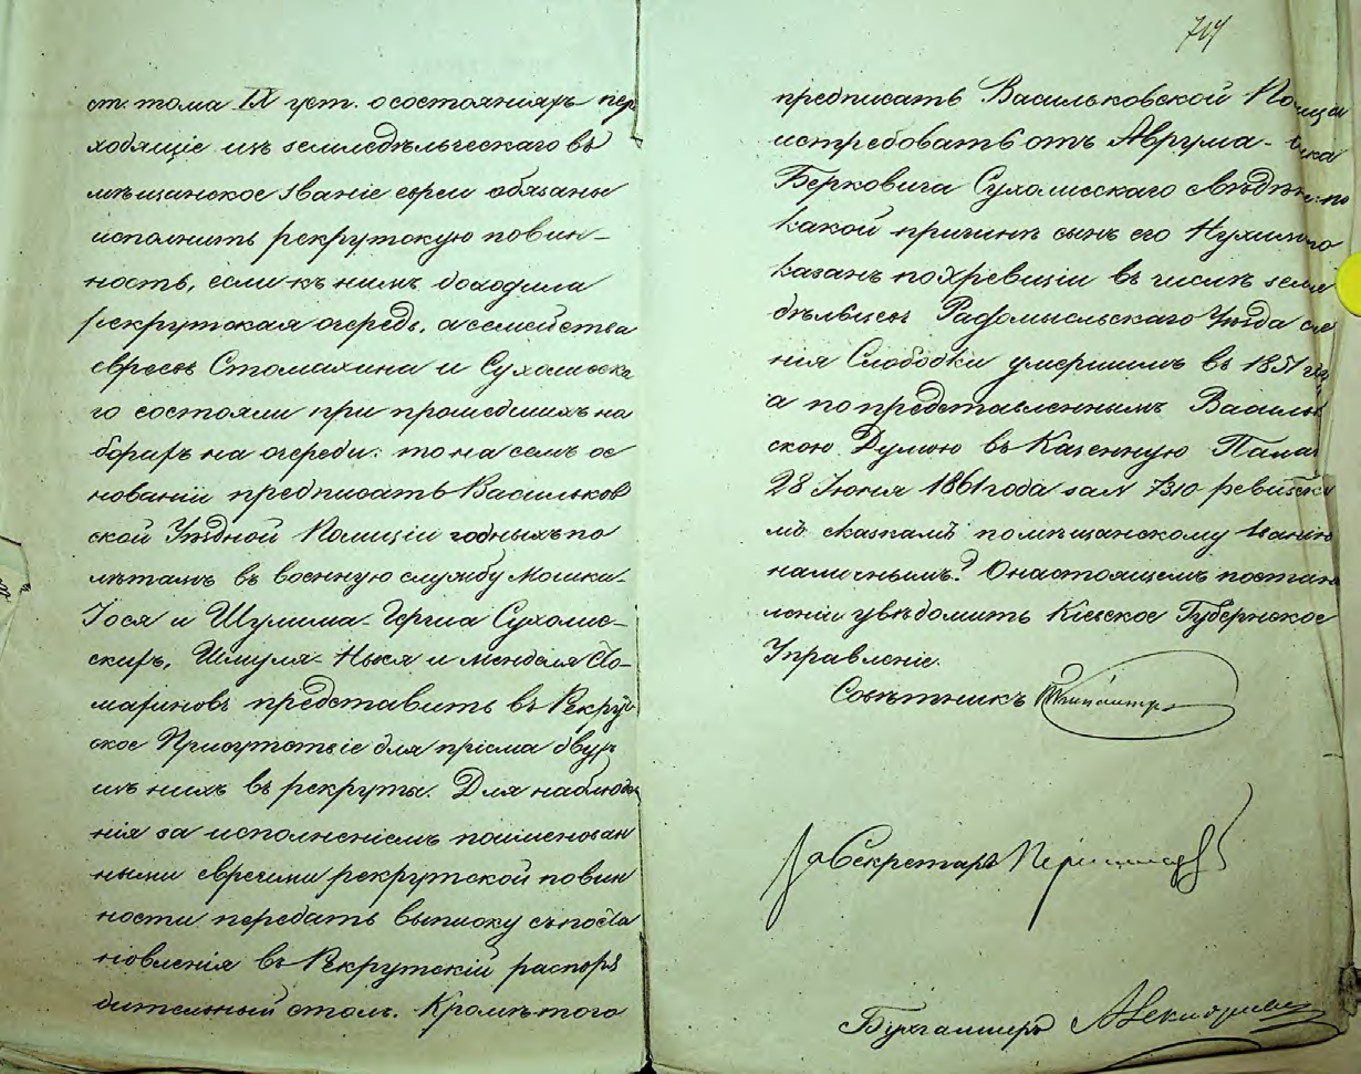 ст. тома IX уст. о состоянияхъ пер
ходящіе изъ земледѣльческаго въ
мѣщанское званіе евреи обязаны
исполнить рекрутскую повин-
ность, если къ нимъ доходила
рекрутская очередь, а семейства
евреевъ Стомахина и Сухолиска
го состояли при прошедшихъ на
борахъ на очереди: то на семъ ос
нованіи предписать Васильков
ской Уѣздной Полиціи годныхъ по
лѣтамъ въ военную службу Мошка-
Іося и Шулима-Гершa Сухолис-
скихъ, Шмуля- и Менделя Сто-
махиновъ представить въ Рекрут
ское Присутствіе для пріема двухъ
изъ нихъ въ рекруты. Для наблюде
нія за исполненіемъ поименован
ными евреями рекрутской повин
ности передать выписку съ поста
новленія въ Рекрутскій распоря
дительный столъ. Кромѣ того
предписать Васильковской Полиціи
истребовать отъ Аврума-
Берковича Сухолисскаго свѣдѣніе по
какой причинѣ сынъ его Нухимъ по
казанъ по X ревизіи въ числѣ земле
дѣльцевъ Радомысльскаго Уѣзда селе
нія Слободки умершимъ въ 1851 году
а по представленнымъ Васильков
скою Думою въ Казенную Палату
28 Іюня 1861 года за № 7310 ревизски
мъ сказкамъ по мѣщанскому званію
наличнымъ? О настоящемъ постанов
леніи увѣдомить Кіевское Губернское
Управленіе.
Совѣтникъ
За Секретаря
Бухгалтеръ